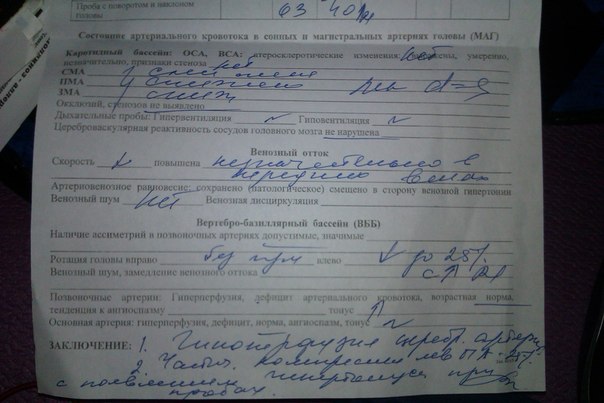 Проба с поворотом и наклоном
головы
Состояние артериального кровотока в сонных и магистральных артериях головы (МАГ)
Каротидный бассейн: ОСА, ВСА: атеросклеротические изменения: нет, умеренно,
незначительно, признаки стеноза нет
СМА
ПМА d=s
ЗМА сниж
Окклюзий, стенозов не выявлено
Дыхательные пробы: Гипервентиляция N Гиповентиляция N
Цереброваскулярная реактивность сосудов головного мозга не нарушена
Венозный отток
Скорость повышена незначительно в
венах
Артериовенозное равновесие: сохранено (патологическое) смещено в сторону венозной гипертонии
Венозный шум нет Венозная дисциркуляция
Вертебро-базиллярный бассейн (ВББ)
Наличие ассиметрий в позвоночных артериях допустимые, значимые
Ротация головы вправо без влево ↓ до 25%
Венозный шум, замедление венозного оттока
Позвоночные артерии: Гиперперфузия, дефицит артериального кровотока, возрастная норма,
тенденция к ангиоспазму тонус ↑
Основная артерия: гиперперфузия, дефицит, норма, ангиоспазм, тонус N
ЗАКЛЮЧЕНИЕ: 1. Гипоперфузия артерий
2. Частич. компрессия лев ПА - 25%
с появлением гипертонуса при
пробах.